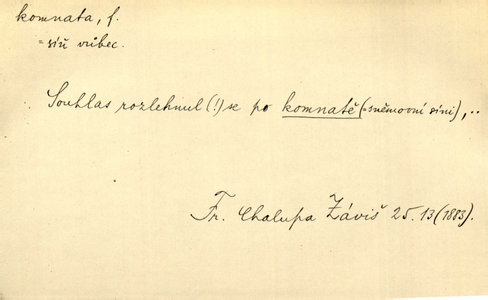 komnata, f.
= síň vůbec.
Souhlas rozlehnul (!) se po komnatě (= sněmovní síni), ..
Fr. Chalupa Záviš 25.13 (1883).